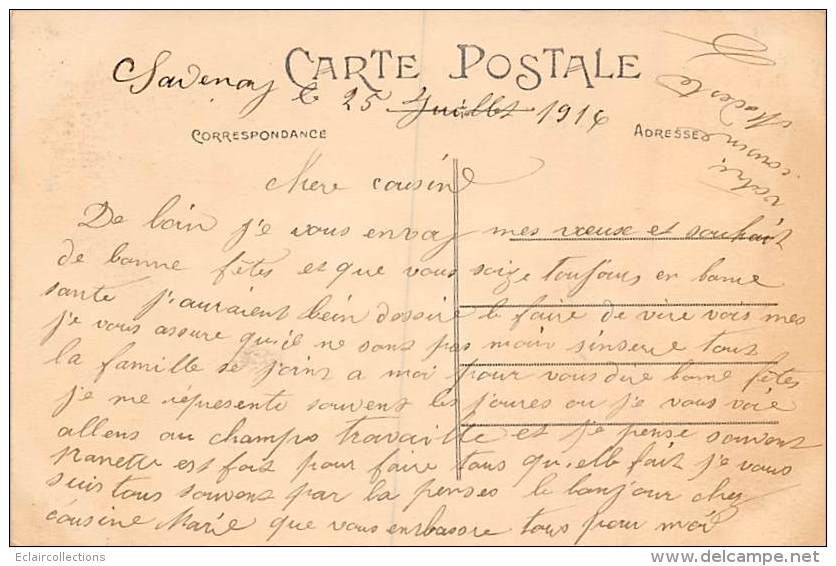 CARTE POSTALE
Savenay le 25 Juillet 1916
CORRESPONDANCE
ADRESSE
chere cousine
De loin je vous envoy mes voeuse et souhait
de bonne fêtes et que vous soize toujours en bonne
sante j'auraient bein dessire le faire de vive vois mes
je vous assure qu'il ne sont pas moin sinsere tout
la famille se joint a moi pour vous dire bonne fêtes
je me répresente souvent les joures ou je vous voié
allens au champs travaille et je pense souvent
nanette est fait pour faire tous qu'elle fait je vous
suis tous souvent par la penses le bonjour chez
cousine Marie que vous enbrasse tous pour moi
votre
cousin
Modeste
G
Eclaircollections
www.delcampe.net